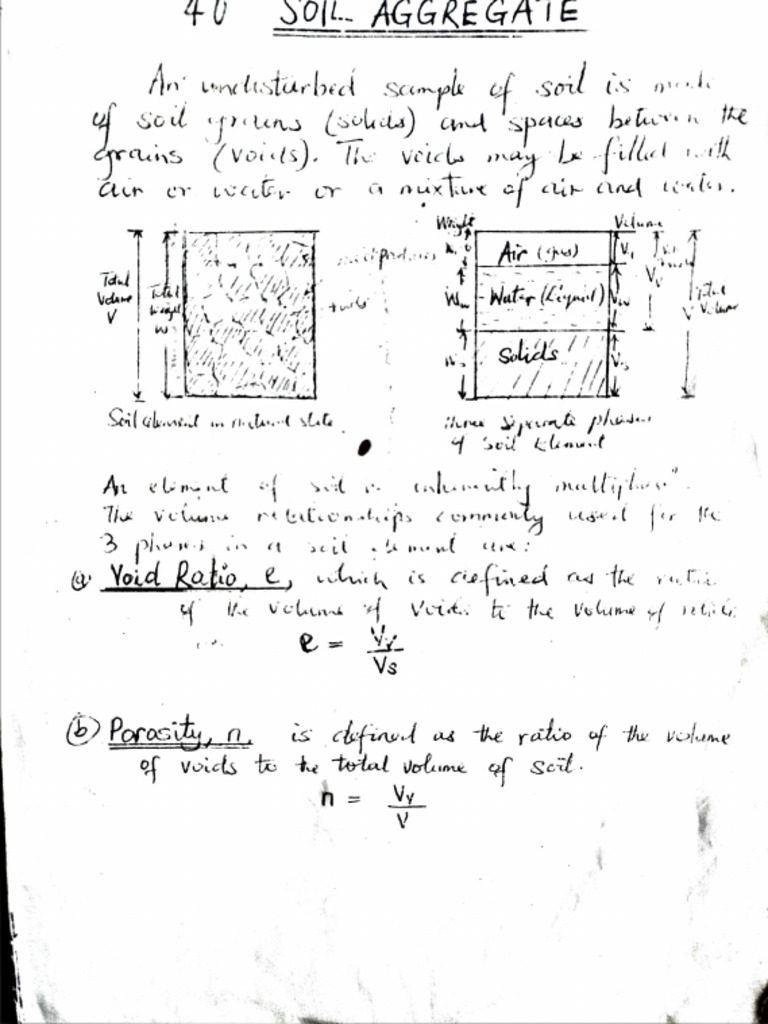 40 SOIL AGGREGATE
An undisturbed sample of soil is made
of soil grains (solids) and spaces between the
grains (voids). The voids may be filled with
air or water or a mixture of air and water.
Weight Volume
Total Volume V
Total weight W
Air (gas)
Water (Liquid)
Solids
Ww
Vw
Vs
Vv
V Total Volume
Soil element in natural state
three separate phases
of soil Element
An element of soil is inherently multiphase".
The volume relationships commonly used for the
3 phases in a soil element are:
(a) Void Ratio, e, which is defined as the ratio
of the volume of voids to the volume of solids
e = Vv
Vs
(b) Porosity, n, is defined as the ratio of the volume
of voids to the total volume of soil.
n = Vv
V